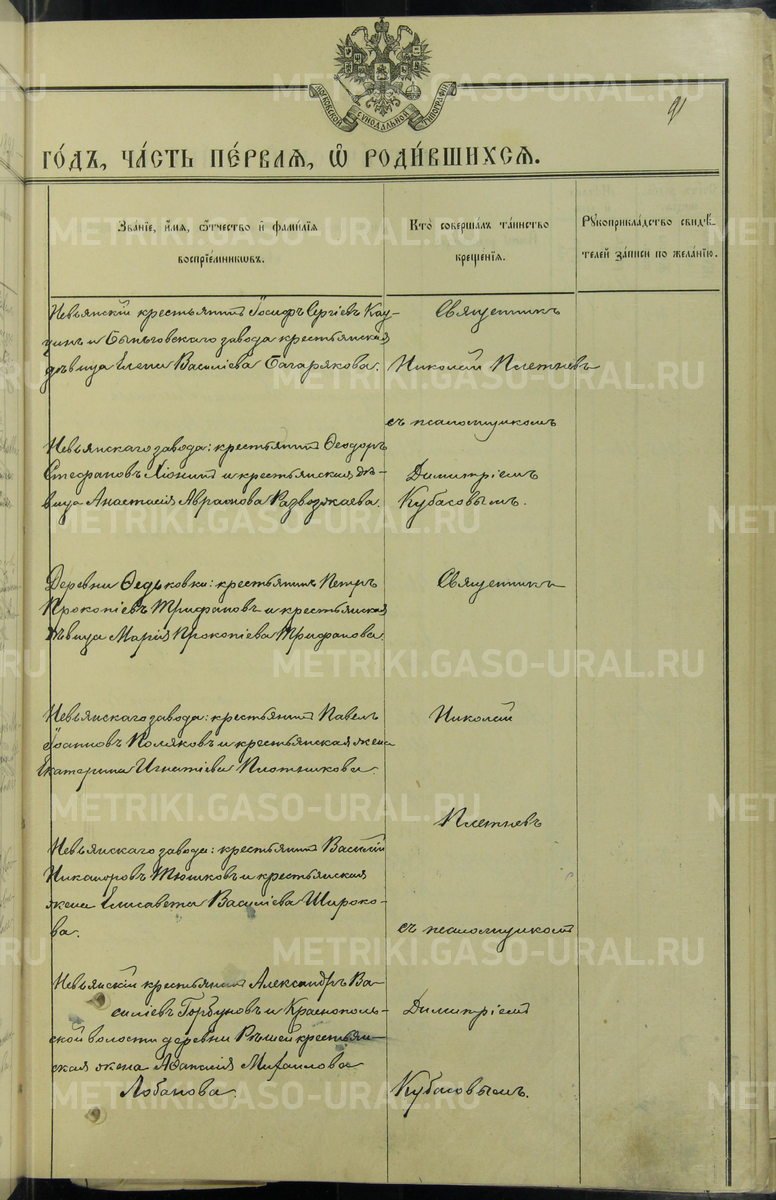 МОСКОВСКОЙ СѴНОДАЛЬНОЙ ТИПОГРАФІИ
91
го́дъ, ча́сть пе́рваѧ, ѡ҆ роди́вшихсѧ.
Зва́нїе, и҆́мѧ, ѻ҆́тчество и҆ фами́лїѧ
воспрїе́мникѡвъ.
Кто̀ соверша́лъ та́инство
креще́нїѧ.
Рꙋкоприкла́дство свидѣ́-
телей за́писи по жела́нїю.
Невьянскій крестьянинъ Іосифъ Сергіевъ Кау-
цинъ и Быньговскаго завода крестьянская
дѣвица Елена Василіева Багарякова.
Священникъ
Николай Плетневъ
съ псаломщикомъ
Невьянскаго завода: крестьянинъ Ѳеодоръ
Стефановъ Хіонинъ и крестьянская дѣ-
вица Анастасія Авраамова Развозжаева.
Димитріемъ
Кубасовымъ.
Деревни Ѳедьковки: крестьянинъ Петръ
Прокопіевъ Трифановъ и крестьянская
дѣвица Марія Прокопіева Трифанова.
Священникъ
Невьянскаго завода: крестьянинъ Павелъ
Іоанновъ Поляковъ и крестьянская жена
Екатерина Игнатіева Плотникова.
Николай
Плетневъ
Невьянскаго завода: крестьянинъ Василій
Никаноровъ Тюшковъ и крестьянская
жена Елисавета Василіева Широко-
ва.
съ псаломщикомъ
Невьянскій крестьянинъ Александръ Ва-
силіевъ Горбуновъ и Краснополь-
ской волости деревни Рѣшей крестьян-
ская жена Аѳанасія Михаилова
Лобанова.
Димитріемъ
Кубасовымъ.
METRIKI.GASO-URAL.RU